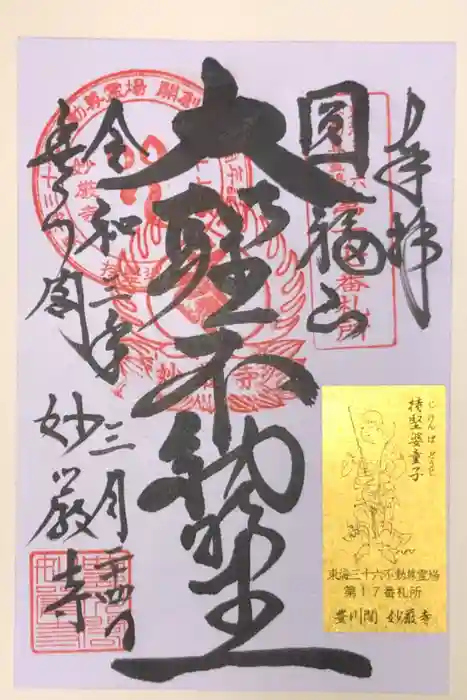 奉拝
圓福山
大聖不動尊
令和三年三月二十四日
豊川閣
妙厳寺
持堅婆童子
じけんばどうじ
東海三十六不動尊霊場
第17番札所
豊川閣 妙厳寺